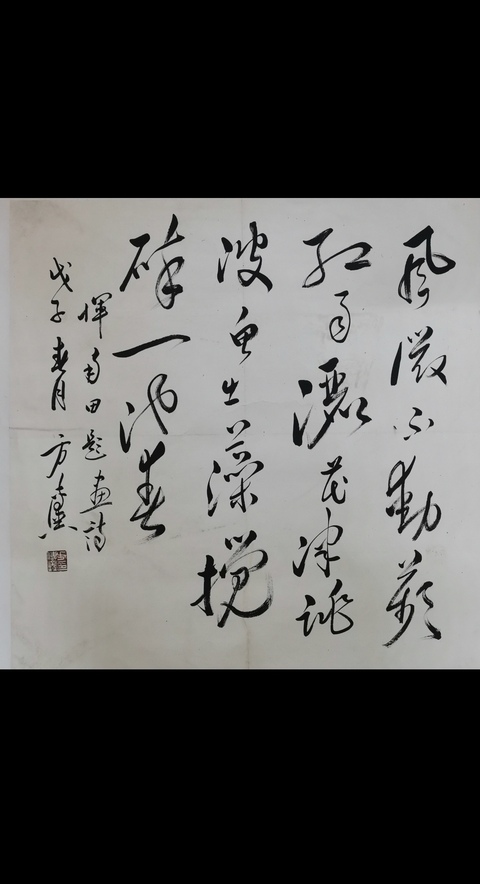 風微不動蘋
紅雨灑花津跳
波魚出藻攪
碎一池春
惲南田題畫詩
戊子春月 方